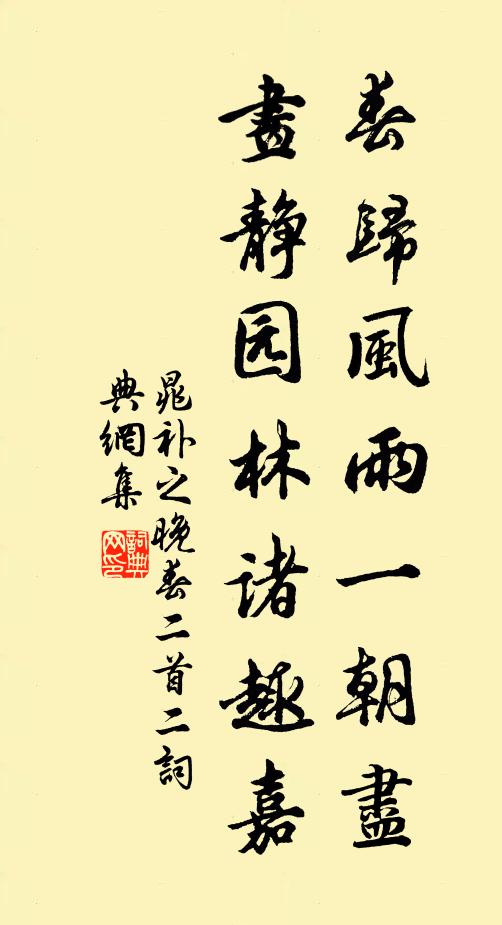 春歸風雨一朝盡
晝静园林诸趣嘉
晁补之晚春二首二詞
典網集
詞典
网印